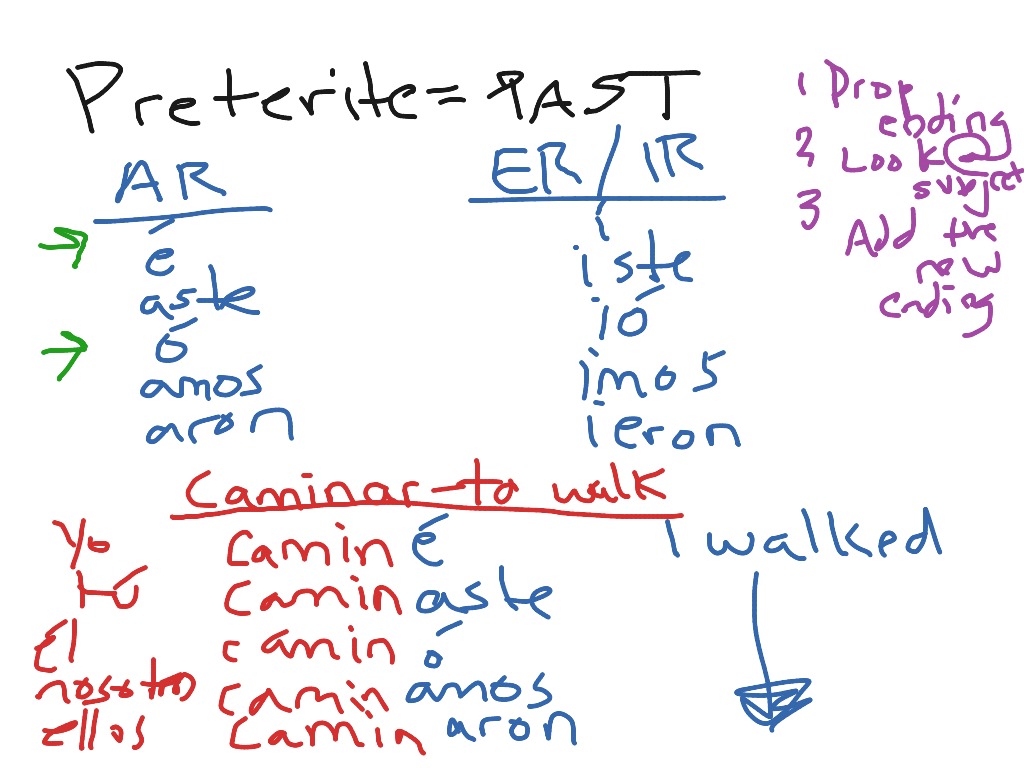 Preterite = PAST
1 Drop ending
2 Look @ subject
3 Add the new ending
AR ER/IR
é í
aste iste
ó ió
amos imos
aron ieron
Caminar - to walk
Yo Caminé I walked
tú Caminaste
él caminó
nosotro caminamos
ellos Caminaron